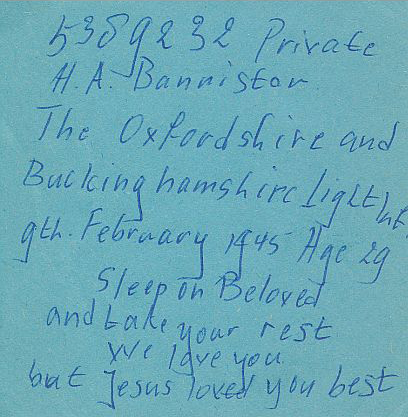 5389232 Private
H.A. Bannister
The Oxfordshire and
Buckinghamshire Light Inf
9th. February 1945 Age 29
Sleep on Beloved
and take your rest
We love you
but Jesus loved you best